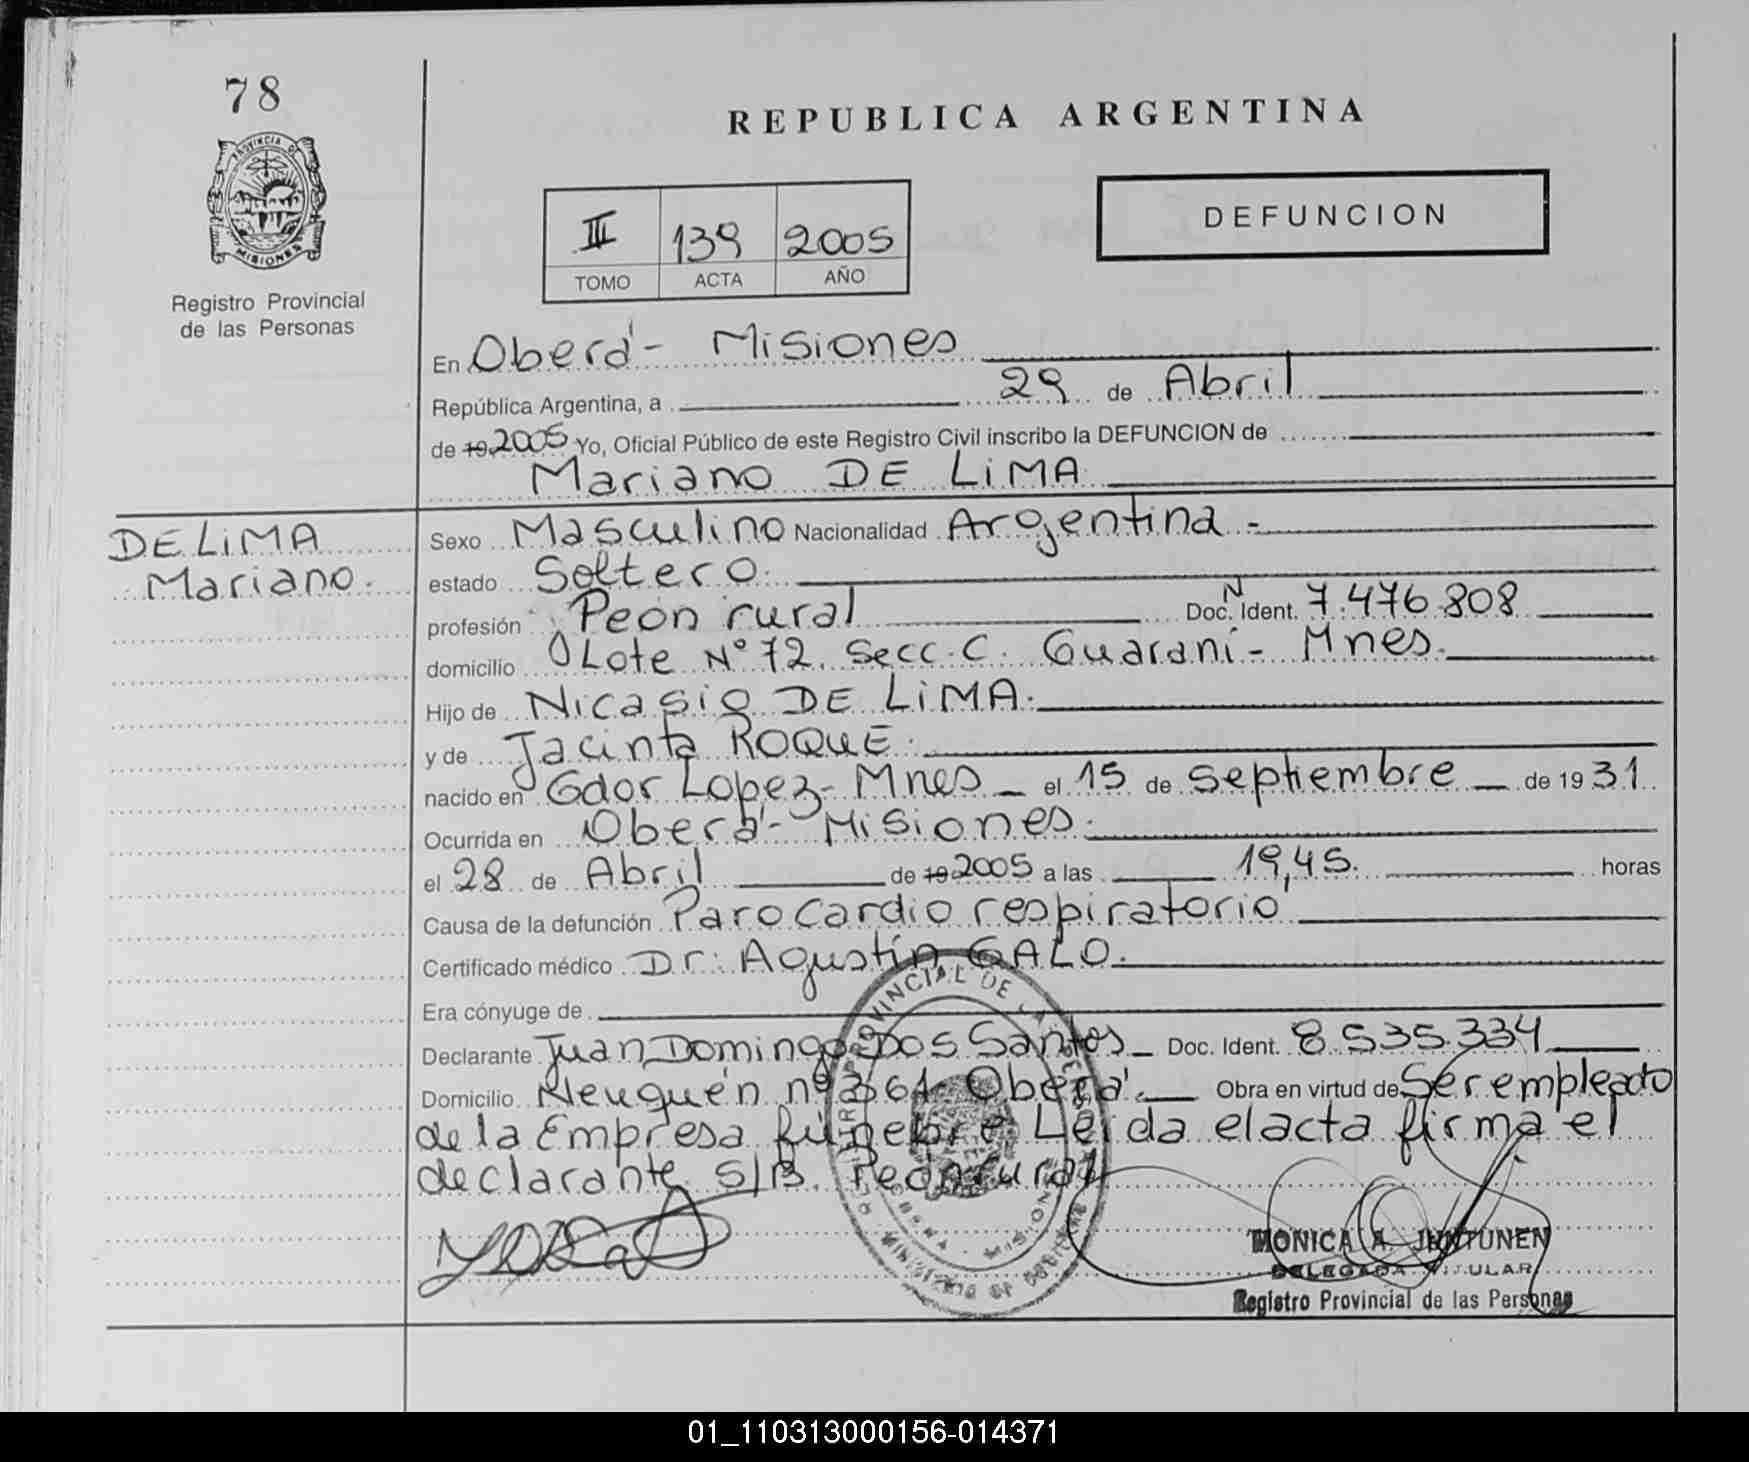 78
PROVINCIA DE
MISIONES
Registro Provincial
de las Personas
REPUBLICA ARGENTINA
III 139 2005
TOMO ACTA AÑO
DEFUNCION
En Oberá - Misiones
República Argentina, a 29 de Abril
de 19 2005 Yo, Oficial Público de este Registro Civil inscribo la DEFUNCION de
Mariano DE LiMA
DE LiMA
Mariano.
Sexo Masculino Nacionalidad Argentina -
estado Soltero.
profesión Peon rural Doc. N Ident. 7.476.808
domicilio Lote N° 72. Secc. C. Guaraní - Mnes.
Hijo de Nicasio DE LiMA.
y de Jacinta ROQUE.
nacido en Gdor Lopez - Mnes - el 15 de septiembre - de 1931.
Ocurrida en Oberá - Misiones.
el 28 de Abril de 19 2005 a las 19,45. horas
Causa de la defunción Paro cardio respiratorio
Certificado médico Dr: Agustín GALO.
Era cónyuge de
Declarante Juan Domingo Dos Santos - Doc. Ident. 8.535.334
Domicilio Neuquén nº 361 - Oberá. Obra en virtud de Ser empleado
de la Empresa fúnebre Leída el acta firma el
declarante S/B. Peon rural
MONICA A. JHNTUNEN
DELEGADA TITULAR
Registro Provincial de las Personas
01_110313000156-014371